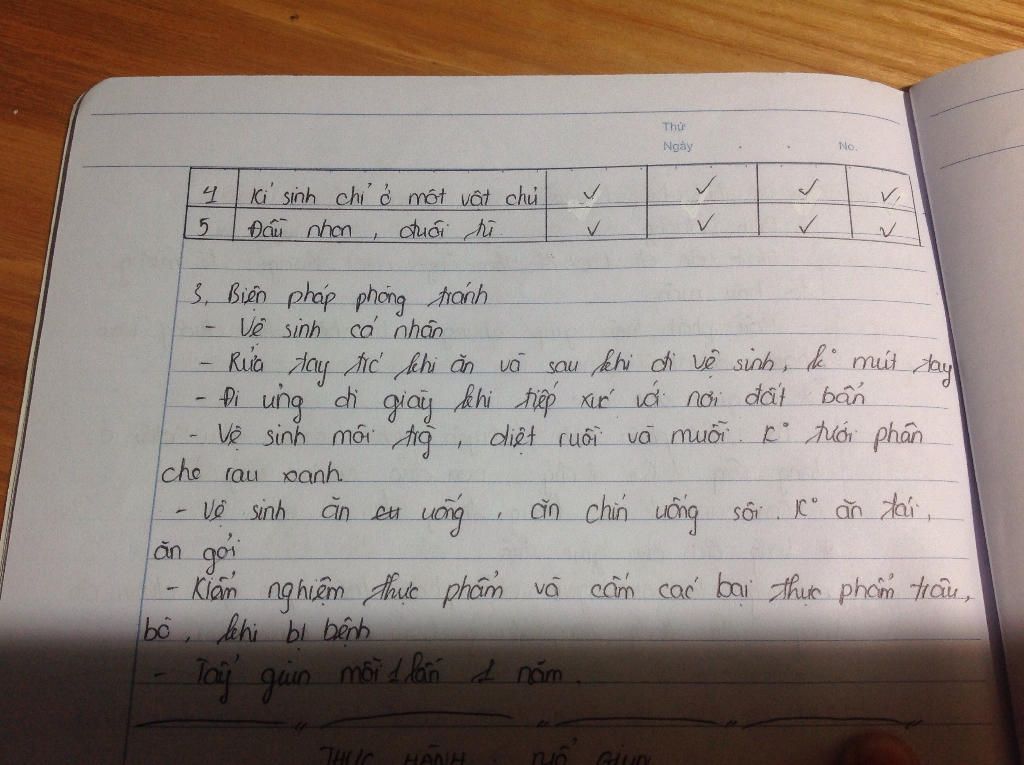 Thứ
Ngày . . No.
4 Kí sinh chỉ ở một vật chủ ✓ ✓ ✓ ✓
5 Đầu nhọn, đuôi tù ✓ ✓ ✓ ✓
3, Biện pháp phòng tránh
- Vệ sinh cá nhân
- Rửa tay trc khi ăn và sau khi đi vệ sinh, k° mút tay
- Đi ủng đi giày khi tiếp xúc với nơi đất bẩn
- Vệ sinh môi trg̀, diệt ruồi và muỗi. K° tưới phân
cho rau xanh.
- Vệ sinh ăn uống, ăn chín uống sôi. K° ăn tái,
ăn gỏi
- Kiểm nghiệm thực phẩm và cấm các loại thực phẩm trâu,
bò, khi bị bệnh
- Tẩy giun mỗi 1 lần 1 năm.
THỰC HÀNH GIUN